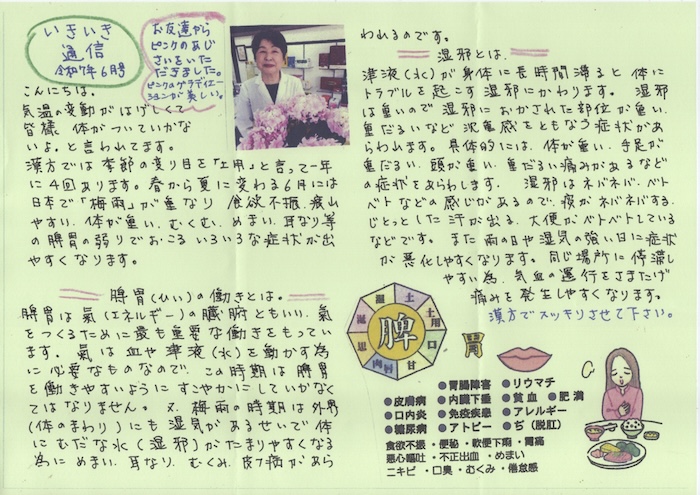 いきいき
通信
令和7年6月号
お友達から
ピンクのあじ
さいをいた
だきました。
ピンクのグラデイエー
ションが美しい。
こんにちは。
気温の変動がはげしくて
皆様 体がついていかな
いよ。と言われてます。
漢方では季節の変り目を「土用」と言って一年
に4回あります。春から夏に変わる6月には
日本で「梅雨」が重なり 食欲不振、疲れ
やすい、体が重い、むくむ、めまい、耳なり等
の脾胃の弱りでおこる いろいろな症状が出
やすくなります。
脾胃(ひい)の働きとは。
脾胃は氣(エネルギー)の臓腑ともいい、氣
をつくるために最も重要な働きをもってい
ます。氣は血や津液(水)を動かす為
に必要なものなので、この時期は脾胃
を働きやすいように すこやかにしていかなく
てはなりません。又、梅雨の時期は外界
(体のまわり)にも湿気があるせいで 体
にむだな水(湿邪)がたまりやすくなる
為に めまい、耳なり、むくみ、皮フ病があら
われるのです。
湿邪とは、
津液(水)が身体に長時間滞ると 体に
トラブルを起こす湿邪にかわります。 湿邪
は重いので 湿邪におかされた部位が重い、
重だるいなど 沈重感をともなう症状があ
らわれます。具体的には、体が重い、手足が
重だるい、頭が重い、重だるい痛みがあるなど
の症状をあらわします。 湿邪はネバネバ、ベト
ベトなどの感じがあるので、痰がネバネバする、
じとっとした汗が出る、大便がベトベトしている
などです。 また 雨の日や湿気の強い日に症状
が悪化しやすくなります。同じ場所に停滞し
やすい為、気血の運行をさまたげ
痛みを発生しやすくなります。
漢方でスッキリさせて下さい。
脾
湿
土
土用
口
甘
肉
思
胃
●胃腸障害 ●リウマチ
●皮膚病 ●内臓下垂 ●貧血 ●肥満
●口内炎 ●免疫疾患 ●アレルギー
●糖尿病 ●アトピー ●ぢ(脱肛)
食欲不振・便秘・軟便下痢・胃痛
悪心嘔吐・不正出血・めまい
ニキビ・口臭・むくみ・倦怠感